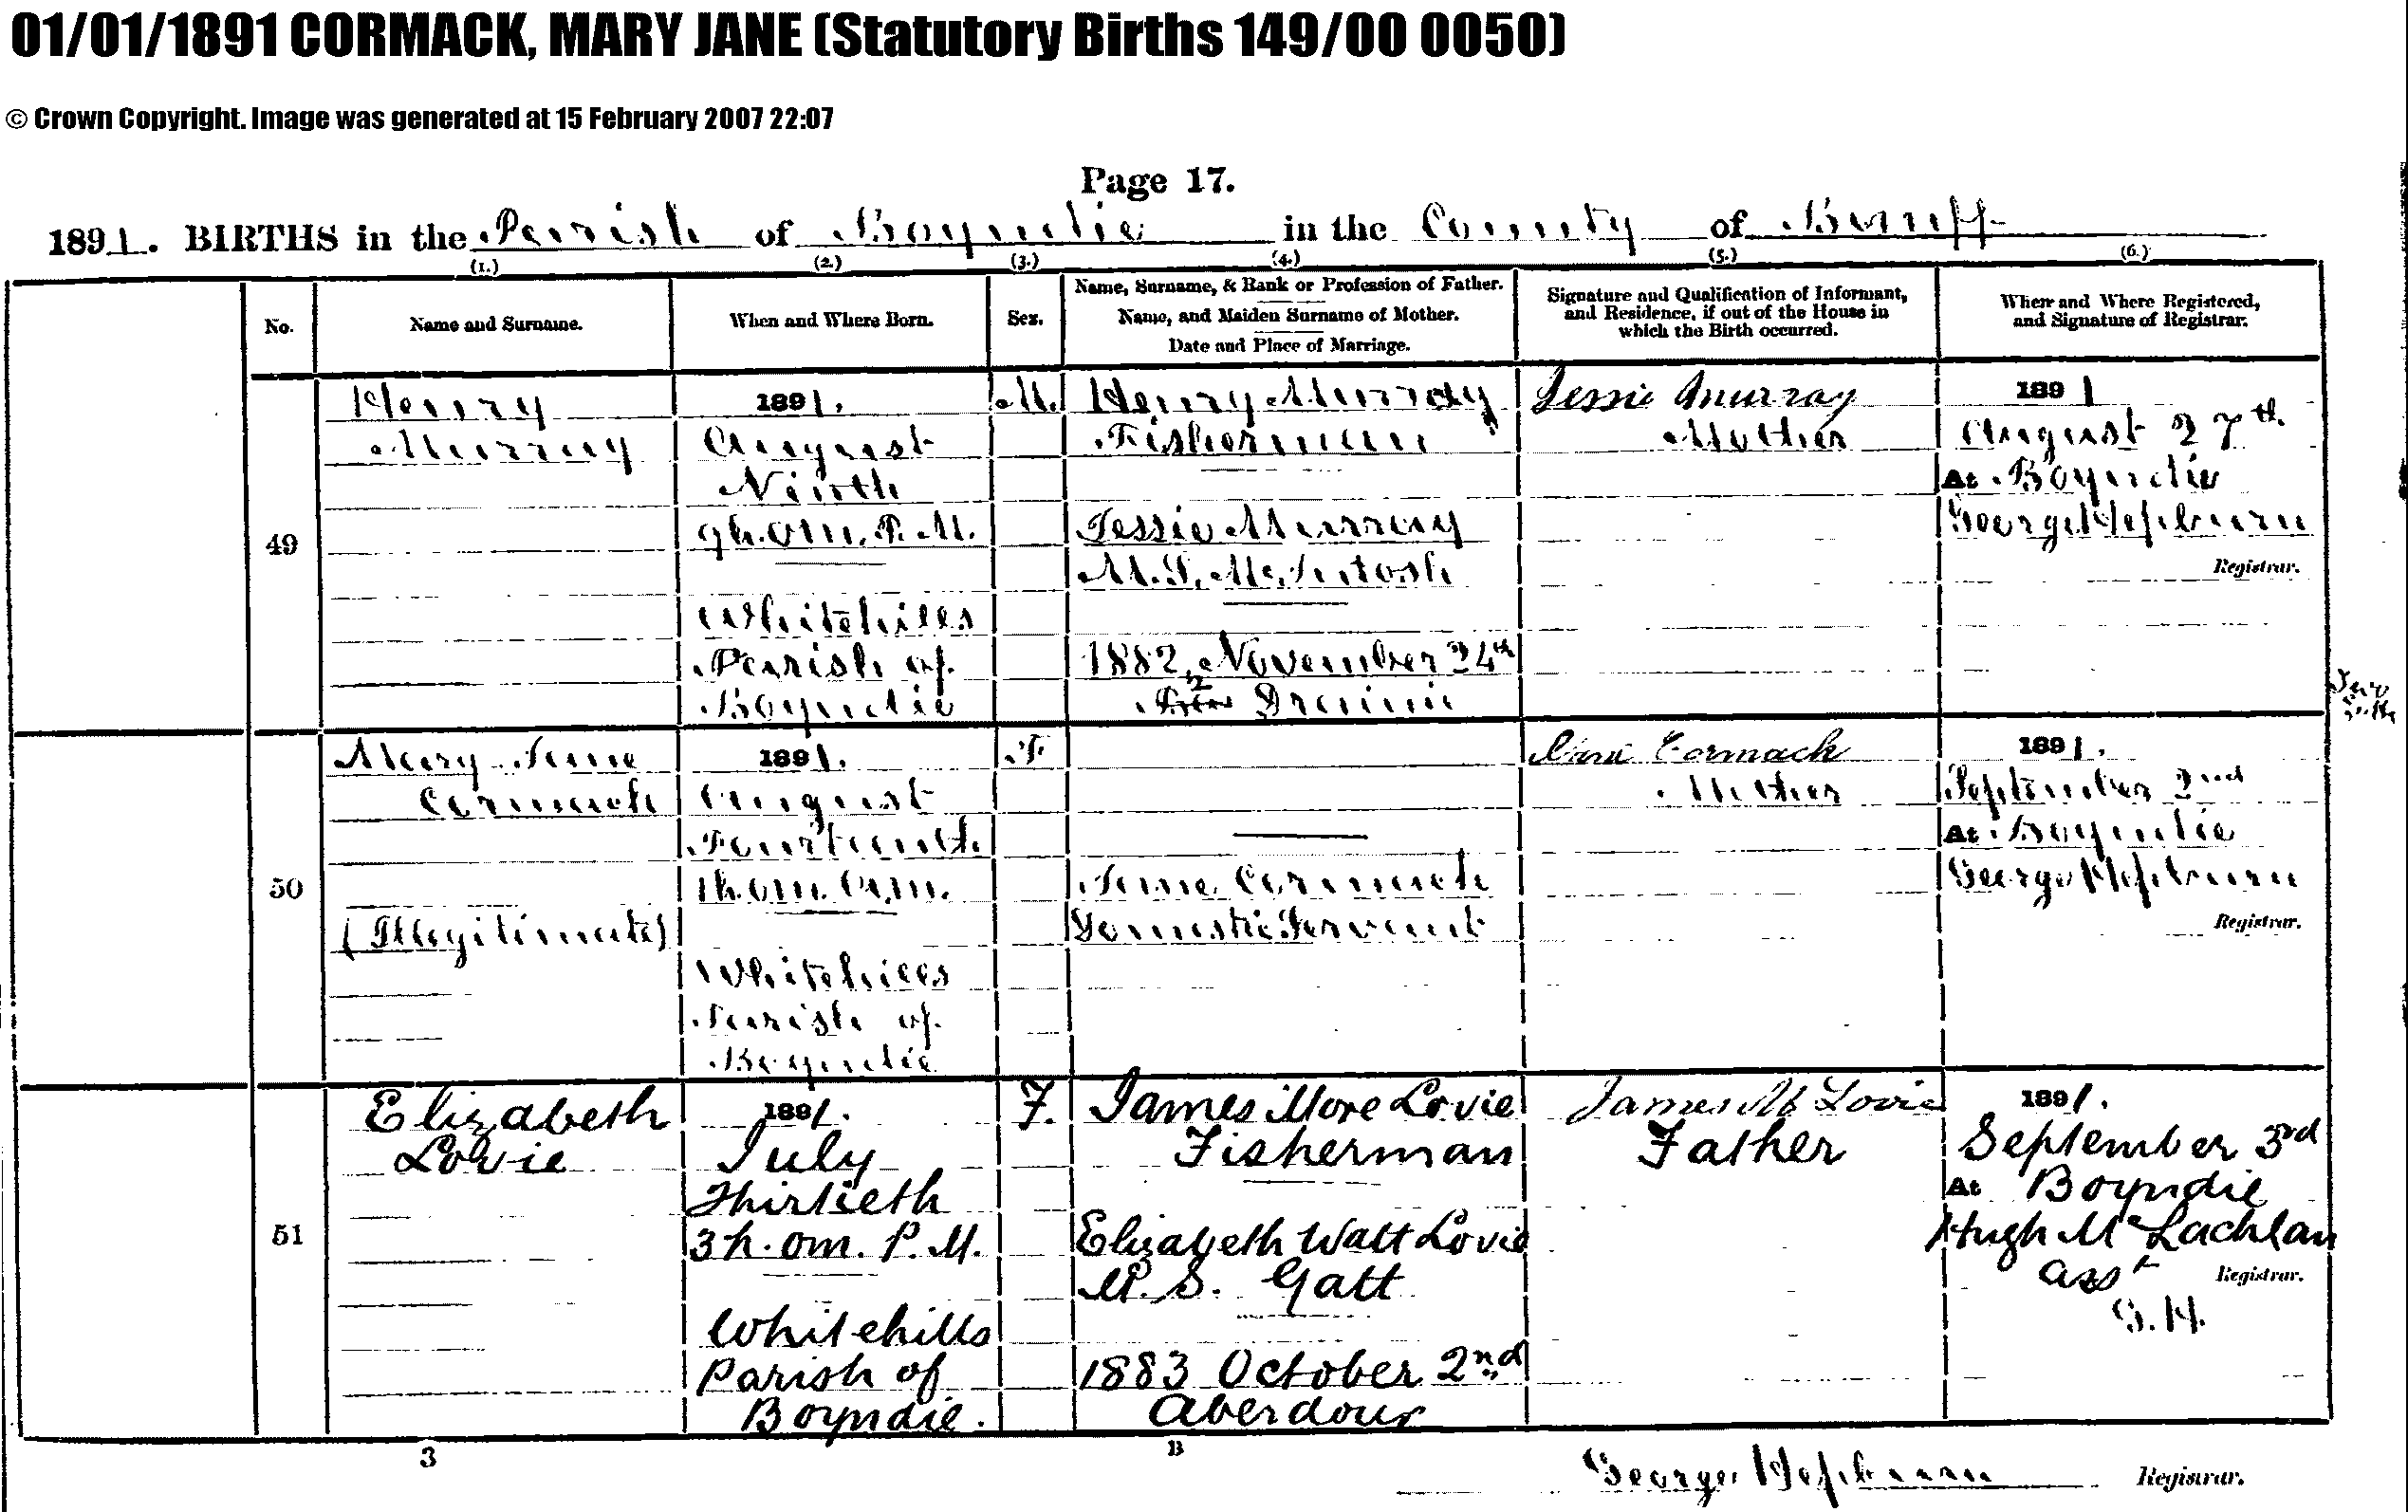 01/01/1891 CORMACK, MARY JANE (Statutory Births 149/00 0050)
© Crown Copyright. Image was generated at 15 February 2007 22:07
Page 17.
1891. BIRTHS in the Parish of Boyndie in the County of Banff
(1.) (2.) (3.) (4.) (5.) (6.)
No.
Name and Surname.
When and Where Born.
Sex.
Name, Surname, & Rank or Profession of Father.
Name, and Maiden Surname of Mother.
Date and Place of Marriage.
Signature and Qualification of Informant,
and Residence, if out of the House in
which the Birth occurred.
When and Where Registered,
and Signature of Registrar.
49
Henry
Murray
1891.
August
Ninth
9h.0m. P.M.
Whitehills
Parish of
Boyndie
M.
Henry Murray
Fisherman
Jessie Murray
M.S. McIntosh
1882, November 24th
Drainie
Jessie Murray
Mother
1891
August 27th
At Boyndie
George Hepburn
Registrar.
50
Mary Jane
Cormack
(Illegitimate)
1891.
August
Fourteenth
1h.0m. A.M.
Whitehills
Parish of
Boyndie
F
Jane Cormack
Domestic Servant
Jane Cormack
Mother
1891.
September 2nd
At Boyndie
George Hepburn
Registrar.
51
Elizabeth
Lovie
1891.
July
Thirtieth
3h. 0m. P.M.
Whitehills
Parish of
Boyndie.
F.
James More Lovie
Fisherman
Elizabeth Watt Lovie
M.S. Gatt
1883 October 2nd
Aberdour
James M Lovie
Father
1891.
September 3rd
At Boyndie
Hugh McLachlan
Asst
Registrar.
G.H.
3
B
George Hepburn Registrar.